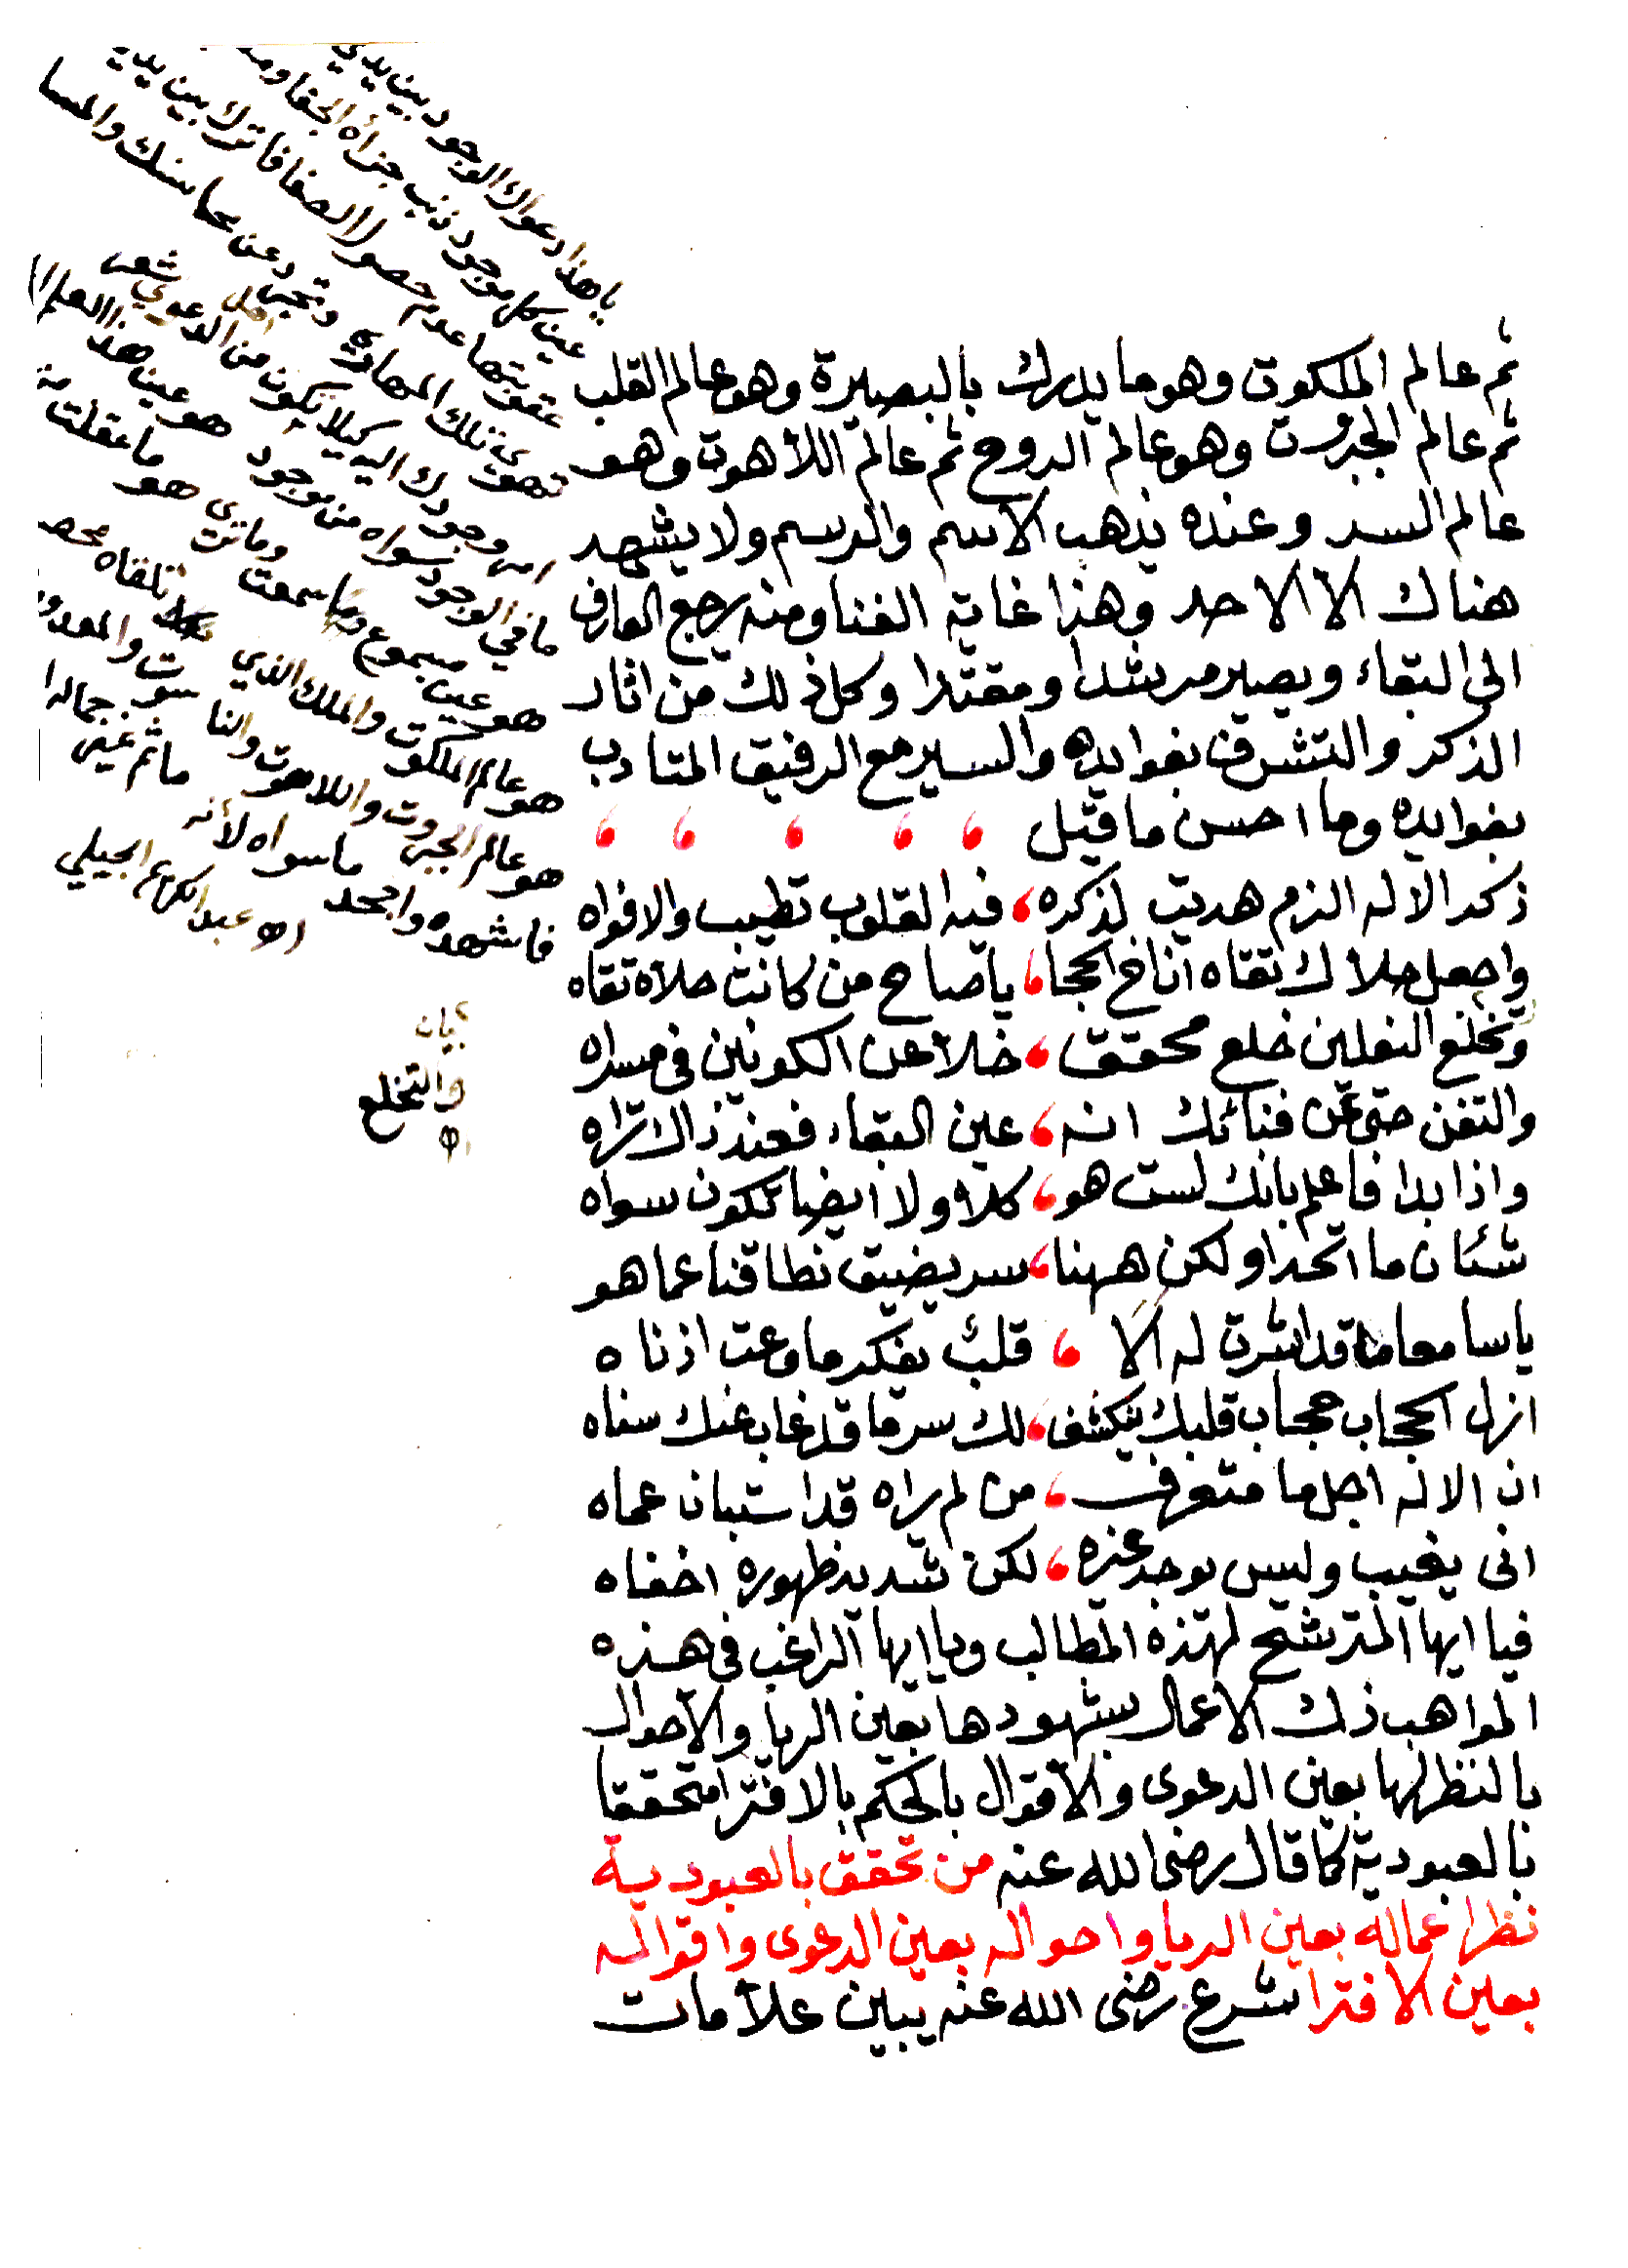 ثم عالم الملكوت وهو ما يدرك بالبصيرة وهو عالم القلب
ثم عالم الجبروت وهو عالم الروح ثم عالم اللأهوت وهو
عالم السر وعنده يذهب الاسم والرسم ولا يشهد
هناك الا الاحد وهذا غاية الفنا ومنه يرجع العارف
الى البقاء ويصير مرشدا ومقتدا وكل ذلك من اثار
الذكر والتشرف بفوايده والسير مع الرفيق المتادب
بفوايده وما احسن ما قيل
ذكر الاله الزم هديت لذكره ، فبه القلوب تطيب والافواه
واجعل حلاك تقاه اناخ الحجا ، ياصاح من كانت حلاه تقاه
وتخلع النعلين خلع محقق ، خلا عن الكونين فى مسراه
والتفن حتى عن فنائك انه ، عين البقاء فعند ذاك تراه
واذا بدا فاعلم بانك لست هو ، كلا ولا ايضا تكون سواه
شئان ما اتحدا ولكن ههنا ، سر يضيق نطاقنا عما هو
ياسامعا ما قد اشرت له الا ، قلب يفكر ما وعت اذناه
ازل الحجاب حجاب قلبك ينكشف ، لك سر ما قد غاب عنك سناه
ان الاله اجل ما متعرف ، من لم يراه قد استبان عماه
انى يغيب وليس يوجد غيره ، لكن شديد ظهوره اخفاه
فيا ايها المترشح لهذه المطالب ويا ايها الراغب فى هذه
المواهب زك الاعمال بشهودها بعين الريا والاحوال
بالنظر لها بعين الدعوى والاقوال بالحكم بالافترا متحققا
بالعبودية كما قال رضى الله عنه من تحقق بالعبودية
نظر اعماله بعين الريا واحواله بعين الدعوى واقواله
بعين الافترا شرع رضى الله عنه يبين علامات
يا هذا دعواك الوجود بين يدي
عين كل موجود ذنب جزأه الجفا
عقوبتها عدم حصول الصفا فاترك بين يدي
تهوى تلك المهاوي وتجرد عن محاسنك والمسا
وجودك اليه كيلا يكون من اهل الدعوي شعر
ما في الوجود سواه من موجود هو عين هذا العلم
هو عين مسموع وما سمعت وما ترى هو ما عقلت
هو عالم الملكوت والملك الذي تلقاه
هو عالم الجبروت واللاهوت والنا سوت والمعدو
فاشهده واجحد ما سواه لأنه ما ثم غير جماله
اه عبد الكريم الجيلي
بيان
والتخلع